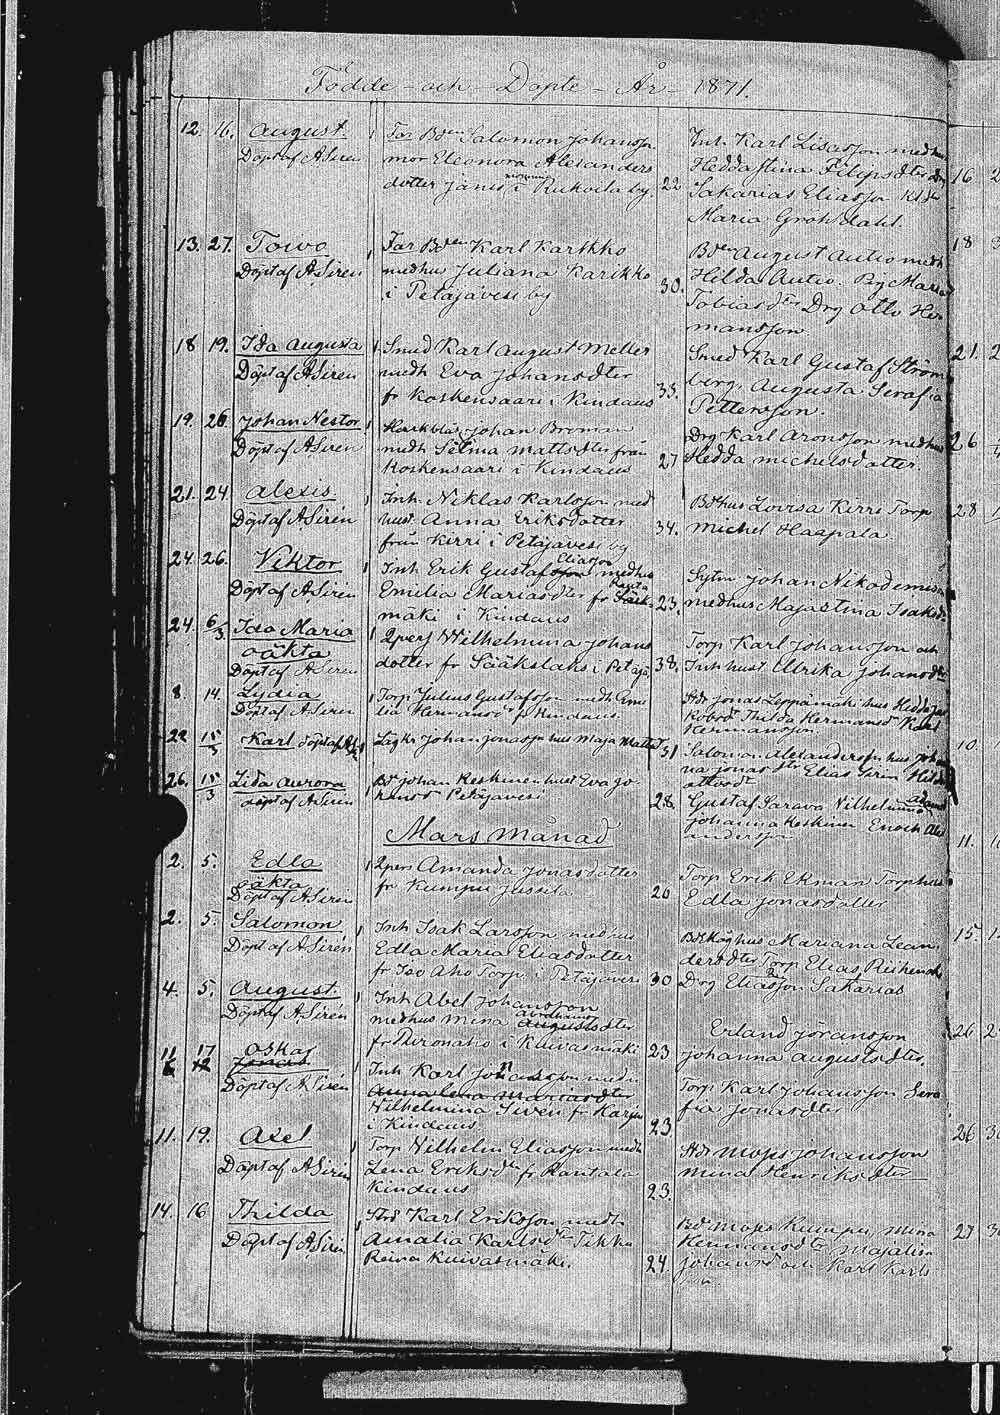 Födde och Döpte År 1871.
12. 16. August.
Döpt af A Sirén
Far Bden Salomon Johansson
mor Eleonora Alexanders
dotter Jänis i Kukoila by. 22
Inh. Karl Lisasson medhu
Hedda Stina Filipsdter Drg
Sakarias Eliasson
Maria Gröhndahl.
13. 27. Toivo
Döpt af A Sirén
Far Bden Karl Karkko
medhus Juliana Karikko
i Petäjävesi by 30.
Bden August Autio medh
Hilda Autio. Pig Maria
Tobiasdter Drg Otto Her
mansson
18 19. Ida Augusta
Döpt af A Sirén
Smed Karl August Meller
medh Eva Johansdter
fr Koskensaari i Kindaus 33.
Smed Karl Gustaf Ström
berg, Augusta Serafia
Pettersson.
19. 26. Johan Nestor
Döpt af A Sirén
Johan Broman
medh Selma Mattsdter från
Koskensaari i Kindaus 27
Drg Karl Aronsson medhus
Hedda Michelsdotter.
21. 24. Alexis.
Döpt af A Sirén
Inh. Niklas Karlsson med
hust. Anna Eriksdotter
från Kirri i Petäjävesi by 34.
Bdhus Lovisa Kirri Torp
Michel Haapala
24. 26. Viktor
Döpt af A Sirén
Eliasson
Inh Erik Gustafsson medhu
Emilia Mariasdter fr
mäki i Kindaus 23.
Sytn Johan Nikodemuss
medhus Maja Stina Isaksd.
24. 6/3 Ida Maria
oäkta
Döpt af A Sirén
Qpers Wilhelmina Johans
dotter fr Sääkslaks i Petäjä 38.
Torp Karl Johansson och
Inh hust Ulrika Johansdr
8. 14. Lydia
Döpt af A Sirén
Torp Julius Gustafsson medh Emi
lia Hermansd fr Kindaus
Jonas Leppämäki hus Hedda
Thilda Hermansd Karl
Hermansson
22 15/3 Karl
Johan Jonasson hus Maja Mattsd 31
Salomon Alexandersson hus Joha
na Jonasdtr Elias Siren
26. 15/3 Lida Aurora
Döpt af A Sirén
Bd Johan Keskinen hust Eva Jo
hansd Petäjävesi 28.
Gustaf Sarava Vilhelmina
Johanna Keskinen Enoch Alex
andersson
Mars Månad
2. 5. Edla
äkta
Döpt af A Sirén
Qpers Amanda Jonasdotter
fr Kumpu Jussila 20
Torp Erik Ekman Torphus
Edla Jonasdotter
2. 5. Salomon
Döpt af A Sirén
Inh Isak Larsson medhus
Edla Maria Eliasdotter
fr Iso Aho Torp i Petäjävesi 30
hus Mariana Lean
dersdter Torp Elias
Drg Eliasson Sakarias
4. 5. August
Döpt af A Sirén
Inh Abel Johansson
Abrahams
medhus Mina Augustsdter
fr Pironaho i Kuivasmäki 23
Erland Göransson
Johanna Augustsdter.
11 17 Oskar
6 12
Döpt af A. Sirén
Inh Karl Johansson med
Anna Lena Mariasdter
Wilhelmina Siven fr
i Kindaus 23.
Torp Karl Johansson Sera
fia Jonasdter
11. 19. Axel
Döpt af A Sirén
Torp Wilhelm Eliasson medh
Lena Eriksdr fr Rantala
Kindaus 23.
Mops Johansson
Mina Henriksdter
14. 16. Thilda
Döpt af A Sirén
Karl Eriksson medh
Amalia Karlsdtr Tikka
Kuivasmäki. 24.
Bd Mops Kumpu Mina
Hermansdtr Majalisa
Johansd och Karl Karls
son
16
18
21.
26
28
10.
11.
15.
26
26
27